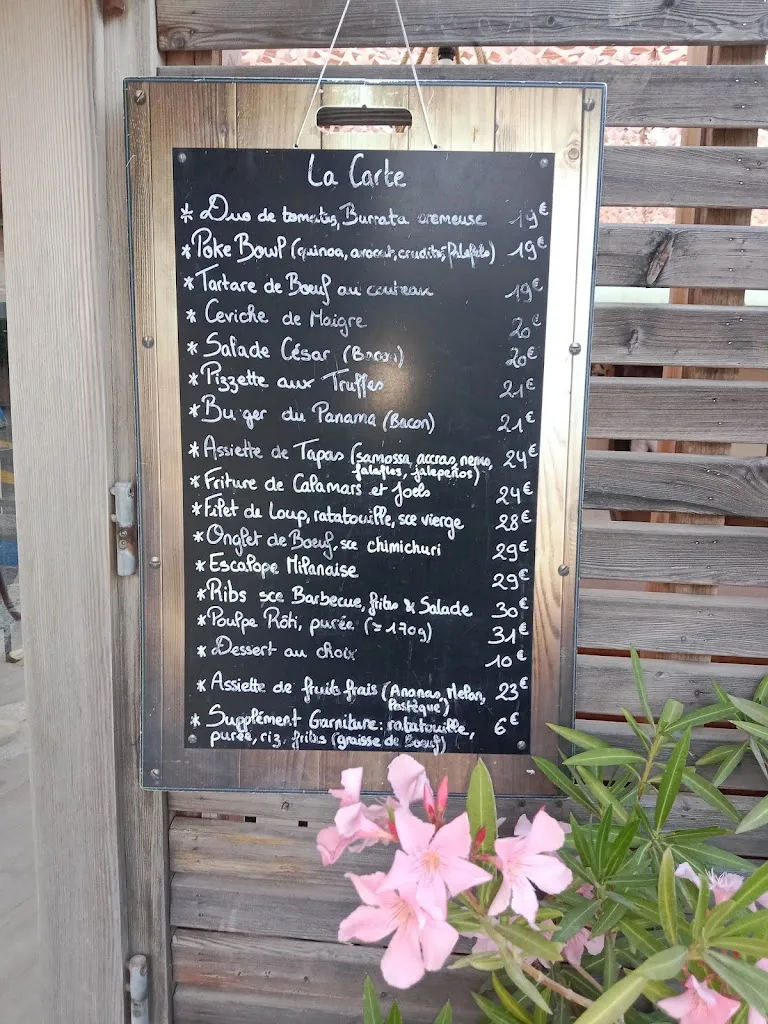 La Carte
* Duo de tomates, Burrata crémeuse 19€
* Poke Bowl (quinoa, avocat, crudités, falafels) 19€
* Tartare de Boeuf au couteau 19€
* Ceviche de Maigre 20€
* Salade César (Bacon) 20€
* Pizzette aux Truffes 21€
* Burger du Panama (Bacon) 21€
* Assiette de Tapas (samossa, accras, nems, 24€
falafles, jalapeños)
* Friture de Calamars et Joels 24€
* Filet de Loup, ratatouille, sce vierge 28€
* Onglet de Boeuf, sce chimichuri 29€
* Escalope Milanaise 29€
* Ribs sce Barbecue, frites & Salade 30€
* Poulpe Rôti, purée (≃170g) 31€
* Dessert au choix 10€
* Assiette de fruits frais (Ananas, Melon, 23€
Pastèque)
* Supplément Garniture: ratatouille, 6€
purée, riz, frites (graisse de Boeuf)